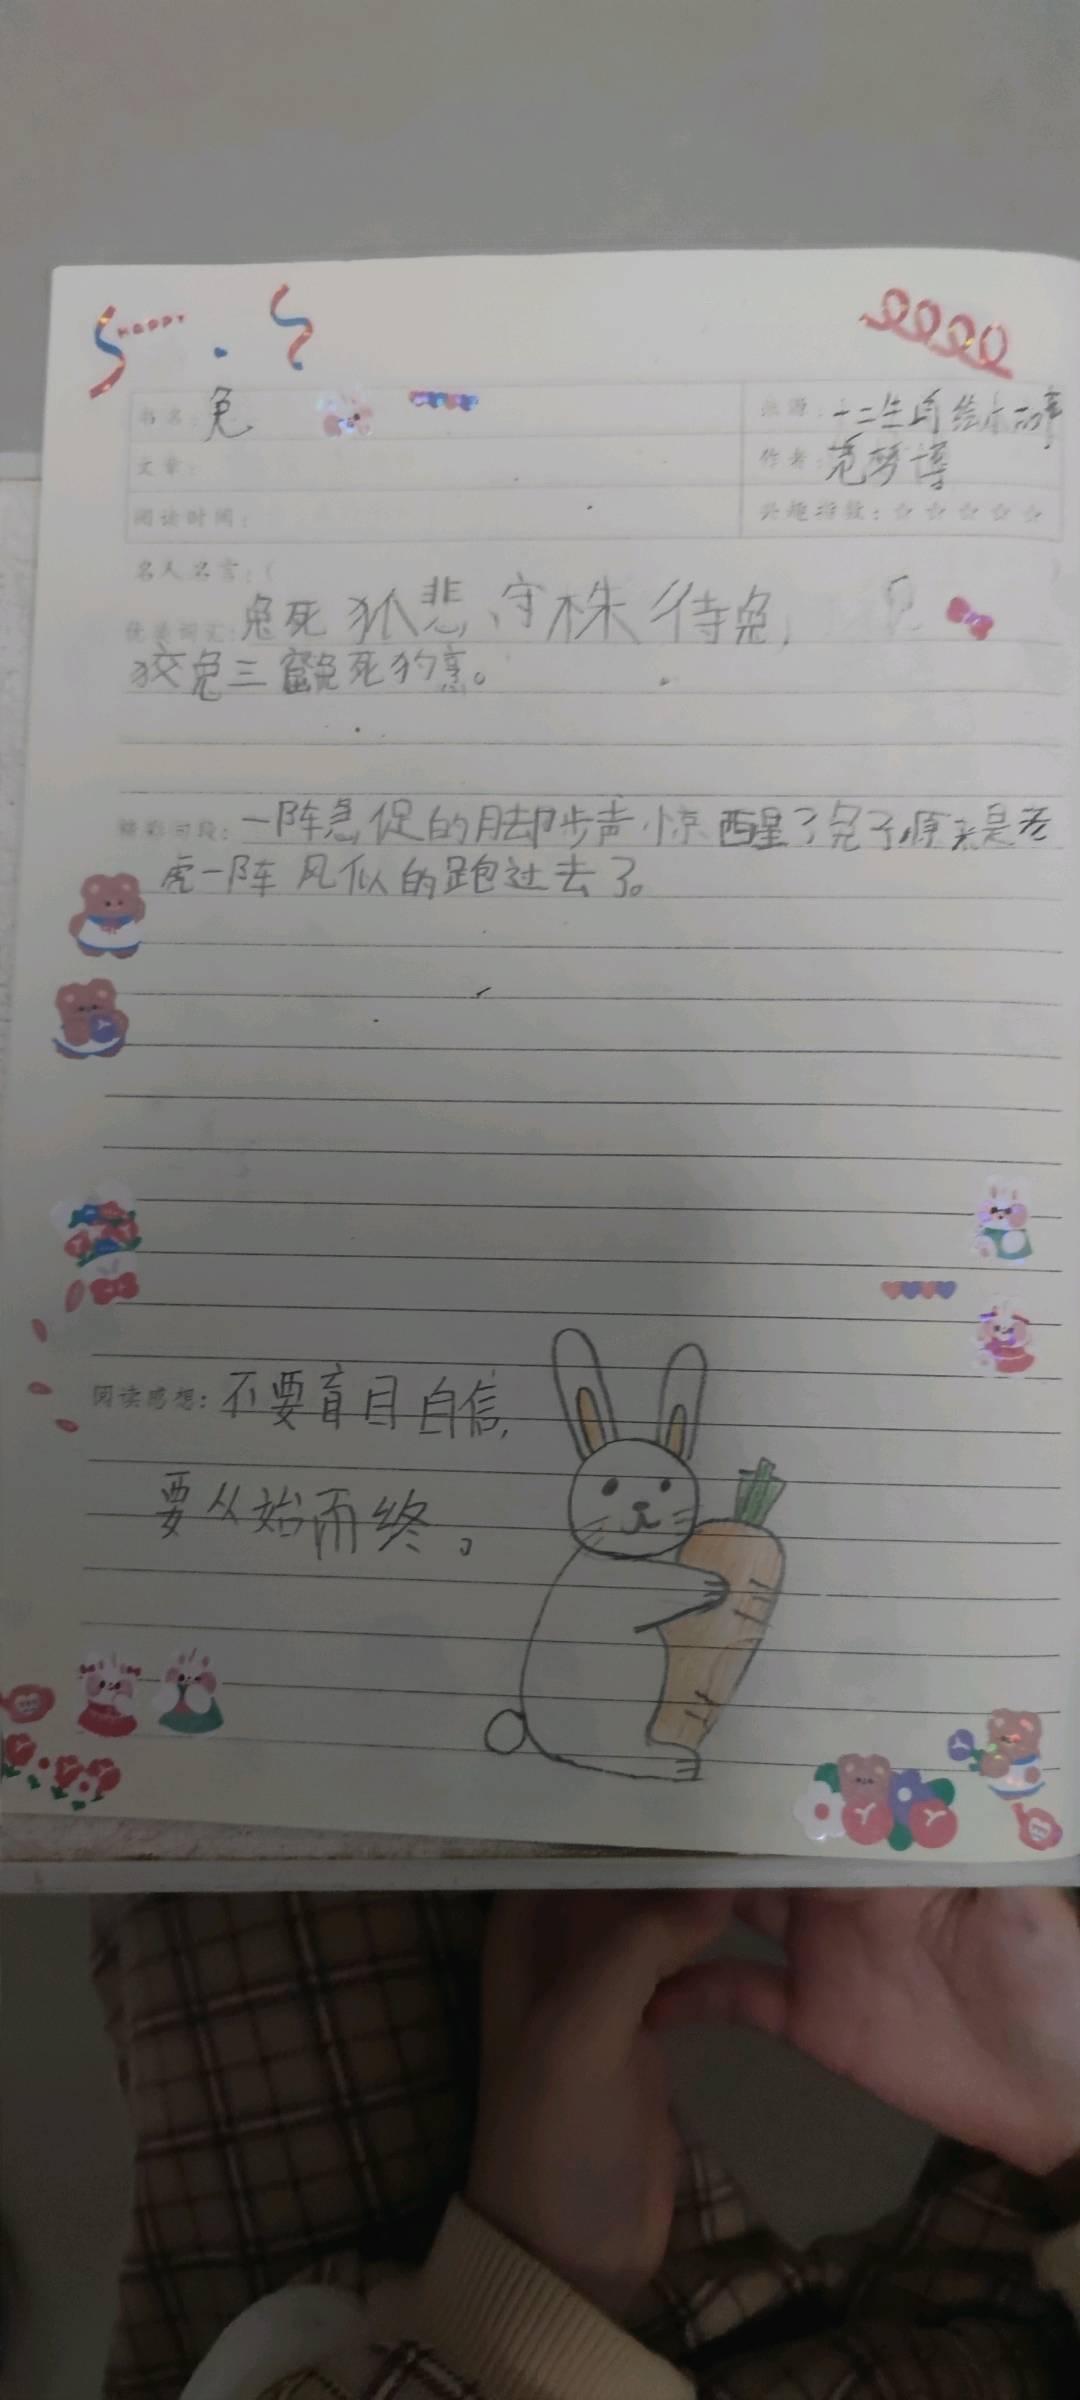 HAPPY
书名：兔
来源：十二生肖绘本故事
文章：
作者：范梦博
阅读时间：
兴趣指数：☆☆☆☆☆
名人名言：（ ）
优美词汇：兔死狐悲，守株待兔，
狡兔三窟兔死狗烹。
精彩句段：一阵急促的脚步声惊醒了兔子，原来是老
虎一阵风似的跑过去了。
阅读感想：不要盲目自信，
要从始而终。